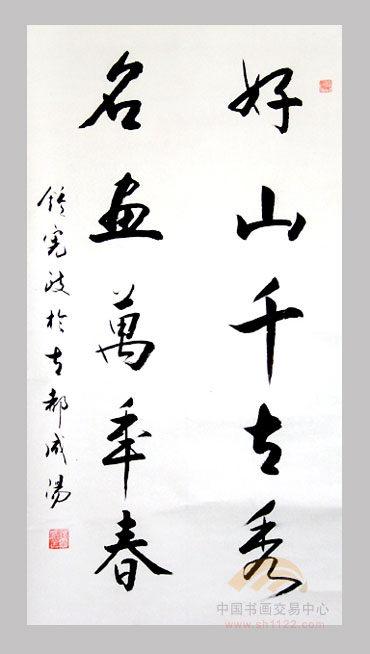 好山千古秀
名画萬年春
於古都咸陽
中国书画交易中心
www.sh1122.com